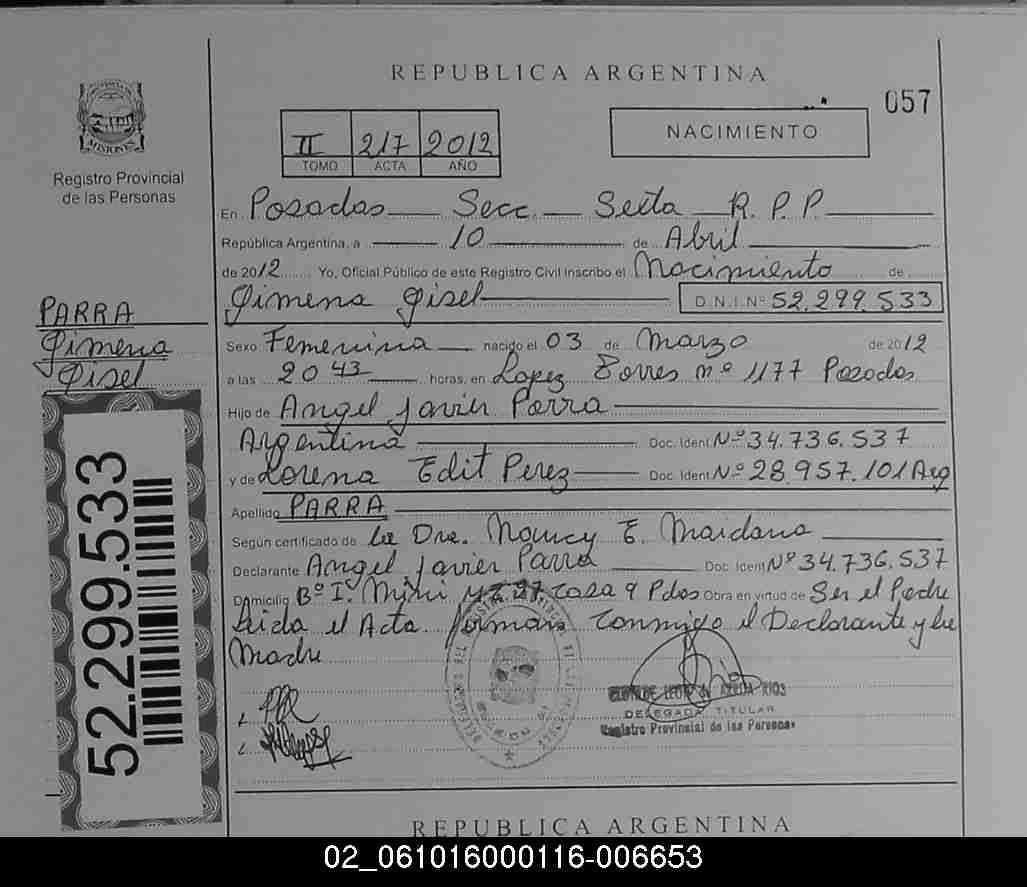 REPUBLICA ARGENTINA
057
MISIONES
Registro Provincial
de las Personas
II 217 2012
TOMO ACTA AÑO
NACIMIENTO
En Posadas Secc. Sexta R.P.P.
República Argentina, a 10 de Abril
de 2012 Yo, Oficial Público de este Registro Civil inscribo el Nacimiento de
Gimena Gisel D.N.I.Nº 52.299.533
PARRA
Gimena
Gisel
Sexo Femenina nacido el 03 de Marzo de 2012
a las 20 43 horas, en Lopez Torres nº 1177 Posadas
Hijo de Angel Javier Parra
Argentina Doc. Ident. Nº 34.736.537
y de Lorena Edit Perez Doc. Ident. Nº 28.957.101 Arg
Apellido PARRA
Según certificado de la Dra. Nancy E. Maidana
Declarante Angel Javier Parra Doc. Ident. Nº 34.736.537
Domicilio Bº I. Mini Casa 9 Pdas Obra en virtud de Ser el Padre
Leida el Acta firman Conmigo el Declarante y la
Madre
52.299.533
DELEGADA TITULAR
Registro Provincial de las Personas
REPUBLICA ARGENTINA
02_061016000116-006653